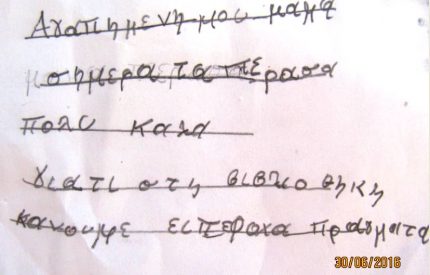 Αγαπημενη μου μαμα
σημερα τα περασα
πολυ καλα
γιατι στη βιβλιο θηκη
κανουμε ειπεροχα πραγματα
30/06/2016